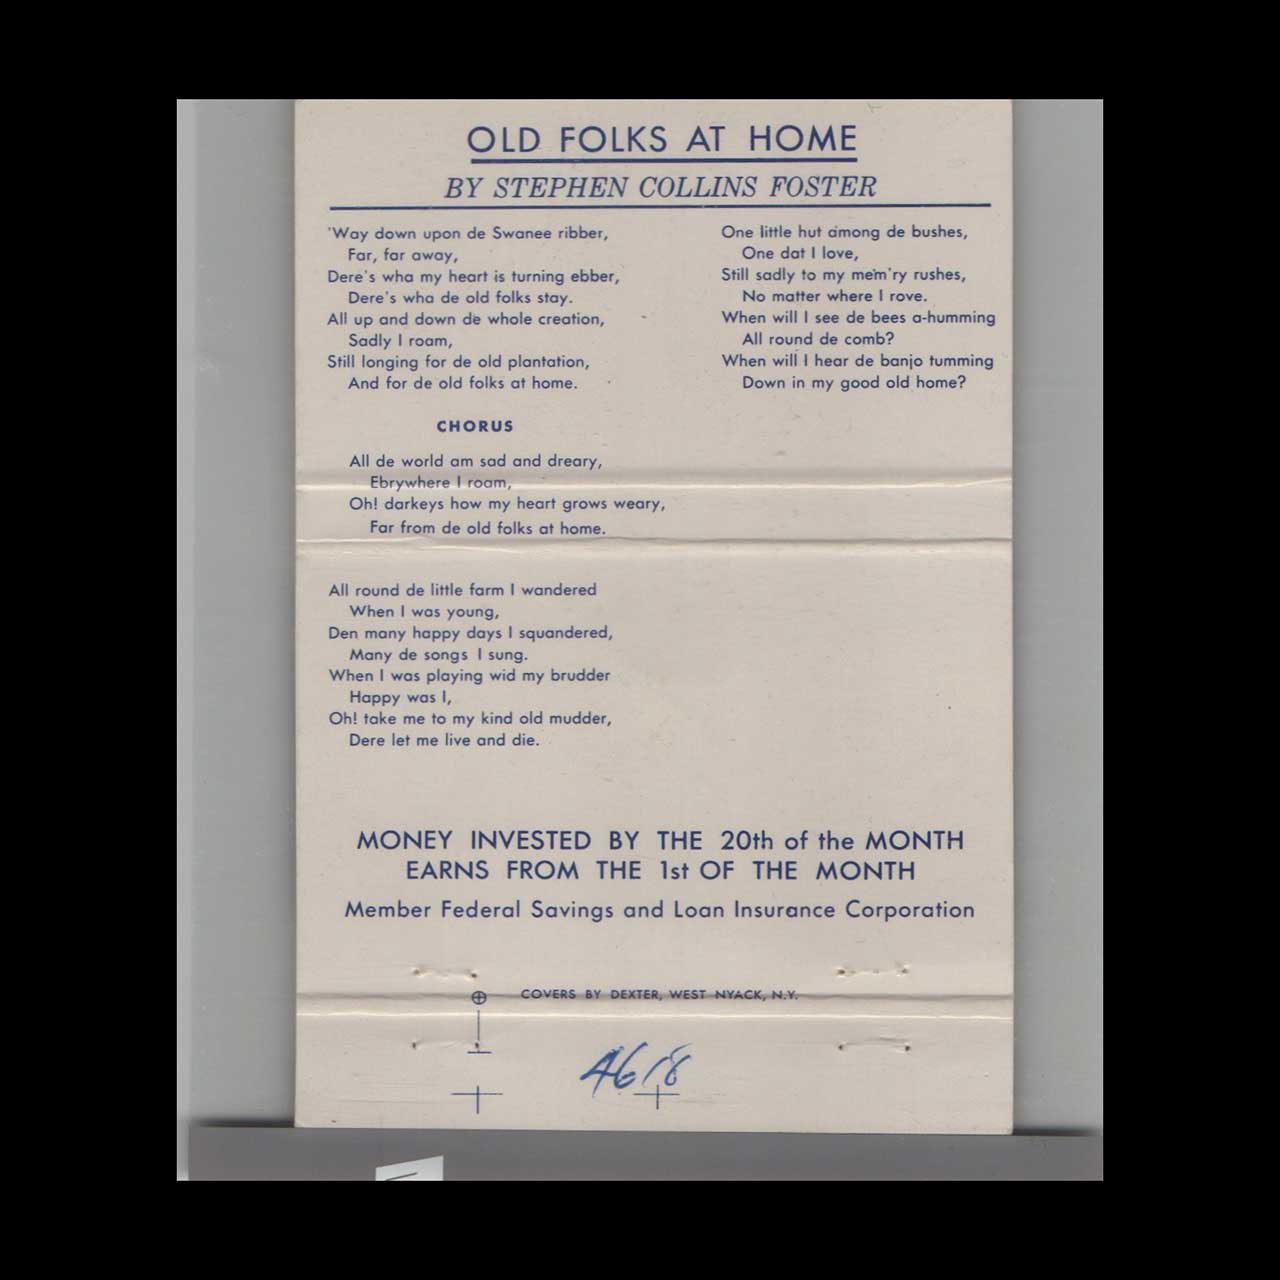 OLD FOLKS AT HOME
BY STEPHEN COLLINS FOSTER
'Way down upon de Swanee ribber,
Far, far away,
Dere's wha my heart is turning ebber,
Dere's wha de old folks stay.
All up and down de whole creation,
Sadly I roam,
Still longing for de old plantation,
And for de old folks at home.
CHORUS
All de world am sad and dreary,
Ebrywhere I roam,
Oh! darkeys how my heart grows weary,
Far from de old folks at home.
All round de little farm I wandered
When I was young,
Den many happy days I squandered,
Many de songs I sung.
When I was playing wid my brudder
Happy was I,
Oh! take me to my kind old mudder,
Dere let me live and die.
One little hut among de bushes,
One dat I love,
Still sadly to my mem'ry rushes,
No matter where I rove.
When will I see de bees a-humming
All round de comb?
When will I hear de banjo tumming
Down in my good old home?
MONEY INVESTED BY THE 20th of the MONTH
EARNS FROM THE 1st OF THE MONTH
Member Federal Savings and Loan Insurance Corporation
COVERS BY DEXTER, WEST NYACK, N.Y.
4618